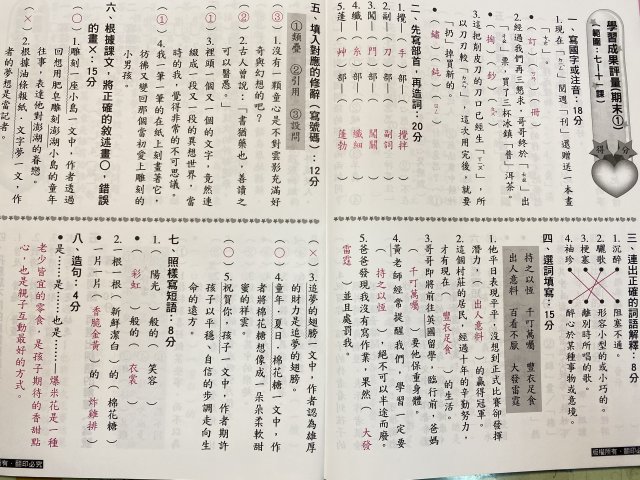 學習成果評量(期末①)
範圍：七～十一課
一、寫國字或注音：18分
2.經過我們再三懇求，哥哥終於「 」出
二、先寫部首，再造詞：20分
1.攪—（手）部—（攪拌）
2.副—（刀）部—（副詞）
3.闖—（門）部—（闖關）
4.纖—（糸）部—（纖細）
5.蓬—（艸）部—（蓬勃）
三、連出正確的詞語解釋：8分
1.沉醉
2.驪歌
3.梗塞
4.袖珍
阻塞不通。
形容小型的或小巧的。
離別時所唱的歌。
醉心於某種事物或意境。
四、選詞填寫：15分
持之以恆 千叮萬囑 豐衣足食
出人意料 百看不厭 大發雷霆
1.他平日表現平平，沒想到正式比賽卻發揮
潛力，（出人意料）的贏得冠軍。
2.這個村莊的居民，經過十年的辛勤努力，
才有現在（豐衣足食）的生活。
3.哥哥即將前往英國留學，臨行前，爸媽
（千叮萬囑）要他保重身體。
4.黃老師經常提醒我們，學習一定要
（持之以恆），絕不可以半途而廢。
5.爸爸發現我沒有寫作業，果然（大發
雷霆）並且處罰我。
五、填入對應的修辭（寫號碼）：12分
①類疊 ②引用 ③設問
（③）1.沒有一顆童心是不對雲影充滿好
奇與幻想的吧？
（②）2.古人曾說：「書猶藥也，善讀之
可以醫愚。」
（①）3.裡頭一個又一個的文字，竟然連
綴成一段又一段的異想世界，當
時的我，覺得非常的不可思議。
（①）4.我一筆一筆的在紙上刻畫著它，
彷彿又變回那個當初愛上雕刻的
小男孩。
六、根據課文，將正確的敘述畫○，錯誤
的畫×：15分
（○）1.雕刻一座小島一文中，作者透過
回想用肥皂雕刻澎湖小島的童年
往事，表達他對澎湖的眷戀。
（×）2.根據油條報紙．文字夢一文，作
者的夢想是當記者。
（×）3.追夢的翅膀一文中，作者認為雄厚
的財力是追夢的翅膀。
（○）4.童年．夏日．棉花糖一文中，作
者將棉花糖想像成一朵朵柔軟甜
蜜的祥雲。
（○）5.祝賀你，孩子一文中，作者期許
孩子以平穩、自信的步調走向生
命的遠方。
七、照樣寫短語：8分
1.（陽光）般的（笑容）
（彩虹）般的（衣裳）
2.一根一根（新鮮潔白）的（棉花糖）
一片一片（香脆金黃）的（炸雞排）
八、造句：4分
是……是……也是……—爆米花是一種
老少皆宜的零食，是孩子期待的香甜點
心，也是親子互動最好的方式。
版權所有．翻印必究